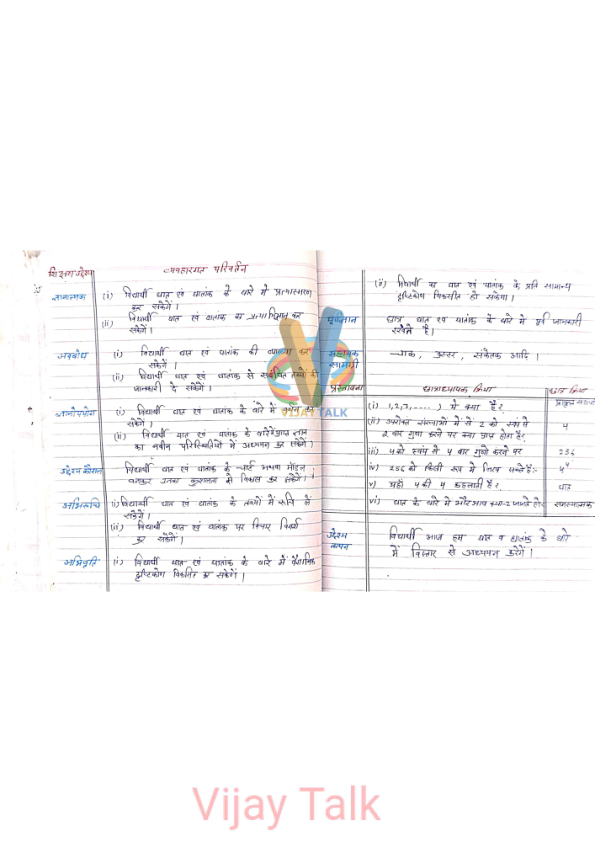 शिक्षण उद्देश्य व्यवहारगत परिवर्तन
ज्ञानात्मक (i) विद्यार्थी घात एवं घातांक के बारे में प्रत्यास्मरण
कर सकेंगे।
(ii) विद्यार्थी घात एवं घातांक का प्रत्याभिज्ञान कर
सकेंगे।
अवबोध (i) विद्यार्थी घात एवं घातांक की व्याख्या कर
सकेंगे।
(ii) विद्यार्थी घात एवं घातांक से संबंधित तथ्यों की
जानकारी दे सकेंगे।
ज्ञानोपयोग (i) विद्यार्थी घात एवं घातांक के बारे में
सकेंगे।
(ii) विद्यार्थी घात एवं घातांक के बारे में प्राप्त ज्ञान
का नवीन परिस्थितियों में अध्ययन कर सकेंगे।
कौशल विद्यार्थी घात एवं घातांक के चार्ट अथवा मॉडल
बनाकर उनका कुशलता से विकास कर सकेंगे।
अभिरूचि (i) विद्यार्थी घात एवं घातांक के तथ्यों में रूचि ले
सकेंगे।
(ii) विद्यार्थी घात एवं घातांक पर विचार विमर्श
कर सकेंगे।
अभिवृति (i) विद्यार्थी घात एवं घातांक के बारे में वैज्ञानिक
दृष्टिकोण विकसित कर सकेंगे।
(ii) विद्यार्थी का घात एवं घातांक के प्रति सामान्य
दृष्टिकोण विकसित हो सकेगा।
पूर्वज्ञान छात्र घात एवं घातांक के बारे में पूर्व जानकारी
रखते है।
सहायक चाक, डस्टर, संकेतक आदि।
सामग्री
प्रस्तावना छात्राध्यापक क्रिया छात्र क्रिया
(i) 1,2,3,.....) ये क्या हैं? प्राकृत संख्या
(ii) उपरोक्त संख्याओं में से 2 को स्वंय से
2 बार गुणा करने पर क्या प्राप्त होगा है? 4
(iii) 4 को स्वंय से 4 बार गुणा करने पर 256
iv) 256 को किसी रूप में लिख सकते हैं:- 4⁴
v) यहाँ 4 की 4 कहलाती हैं? घात
vi) घात के बारे में और आप क्या-2 जानते हो? समस्यात्मक
उद्देश्य विद्यार्थी आज हम घात व घातांक के बारे
कथन में विस्तार से अध्ययन करेंगे।
VIJAY TALK
Vijay Talk